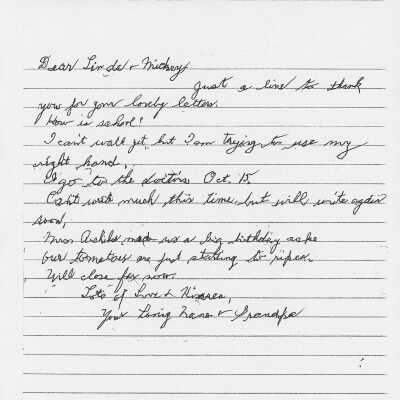 Dear Linda & Mickey
Just a line to thank
you for your lovely letters.
How is school!
I can't walk yet but I am trying to use my
right hand.
I go to the doctors Oct. 15.
Can't write much this time, but will write again
soon,
Miss made us a big birthday cake
Our tomatoes are just starting to ripen.
Will close for now.
Lots of Love &
Your Loving Nana & Grandpa